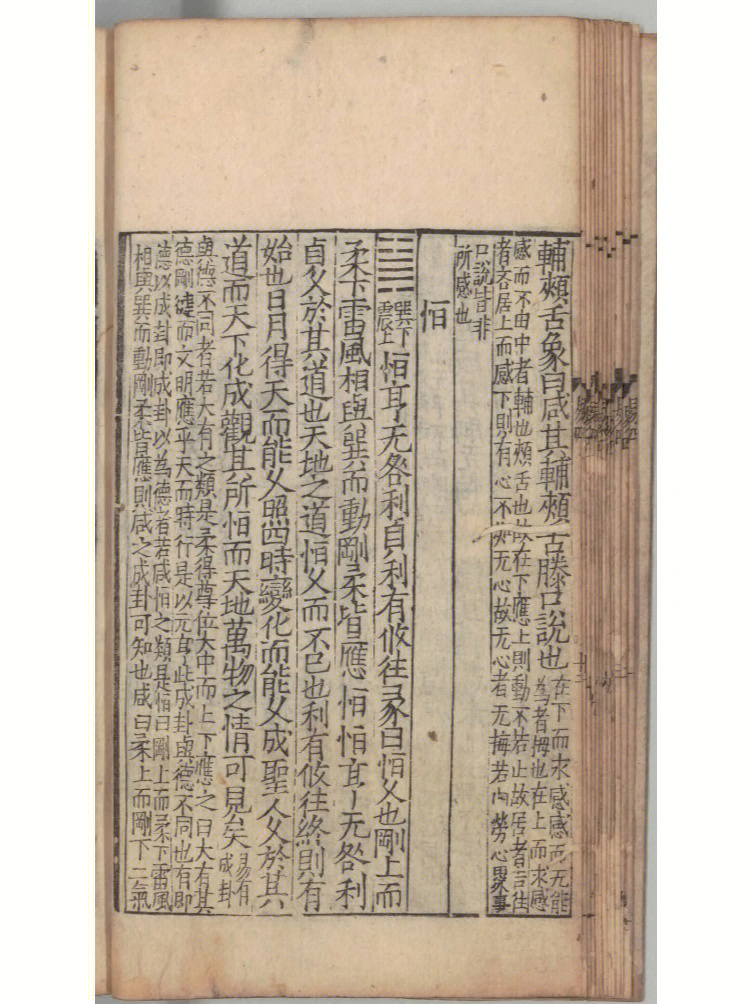 輔頰舌象曰咸其輔頰舌滕口說也在下而求感感而无能
為者拇也在上而求感
感而不由中者輔也頰舌也故在下應上則動不若止故居者吉往
者吝居上而感下則有心不如无心故无心者无悔若内勞心畏事
口說皆非
所感也
恒
䷟巽下
震上恒亨无咎利貞利有攸往彖曰恒久也剛上而
柔下雷風相與巽而動剛柔皆應恒恒亨无咎利
貞久於其道也天地之道恒久而不已也利有攸往終則有
始也日月得天而能久照四時變化而能久成聖人久於其
道而天下化成觀其所恒而天地萬物之情可見矣易有
成卦
與德不同者若大有之類是柔得尊位大中而上下應之曰大有其
德剛健而文明應乎天而時行是以元亨此成卦與德不同也有即
德以成卦即成卦以為德者若咸恒之類是恒曰剛上而柔下雷風
相與巽而動剛柔皆應則咸之成卦可知也咸曰柔上而剛下二氣